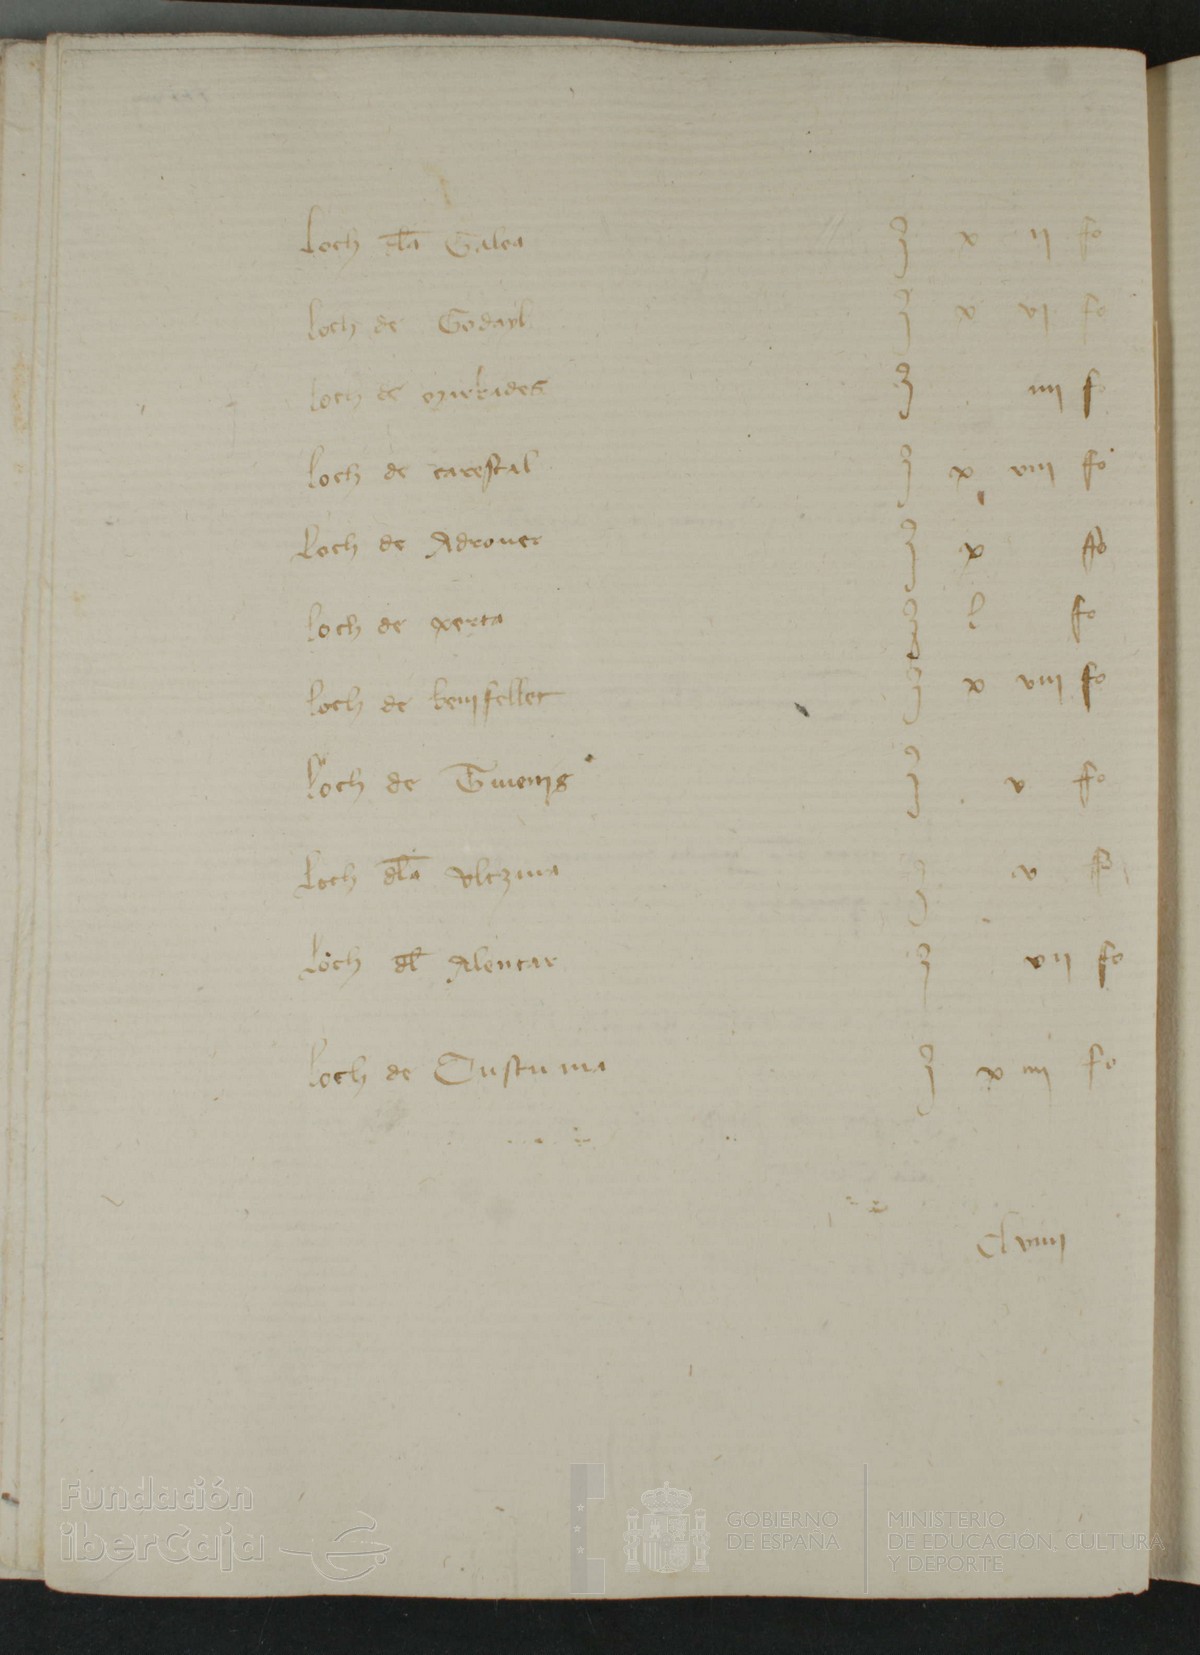 Loch dla Galea x ii fo
Loch de Godayl x vi fo
Loch de iiii fo
Loch de carestal x viii fo
Loch de Adrouer x ffo
Loch de xerta l fo
Loch de benifellet x viii fo
Loch de v fo
Loch dla v f
Loch dl Alentar vii fo
Loch de x iiii fo
Cl viiii
Fundación
iberCaja
GOBIERNO
DE ESPAÑA
MINISTERIO
DE EDUCACIÓN, CULTURA
Y DEPORTE